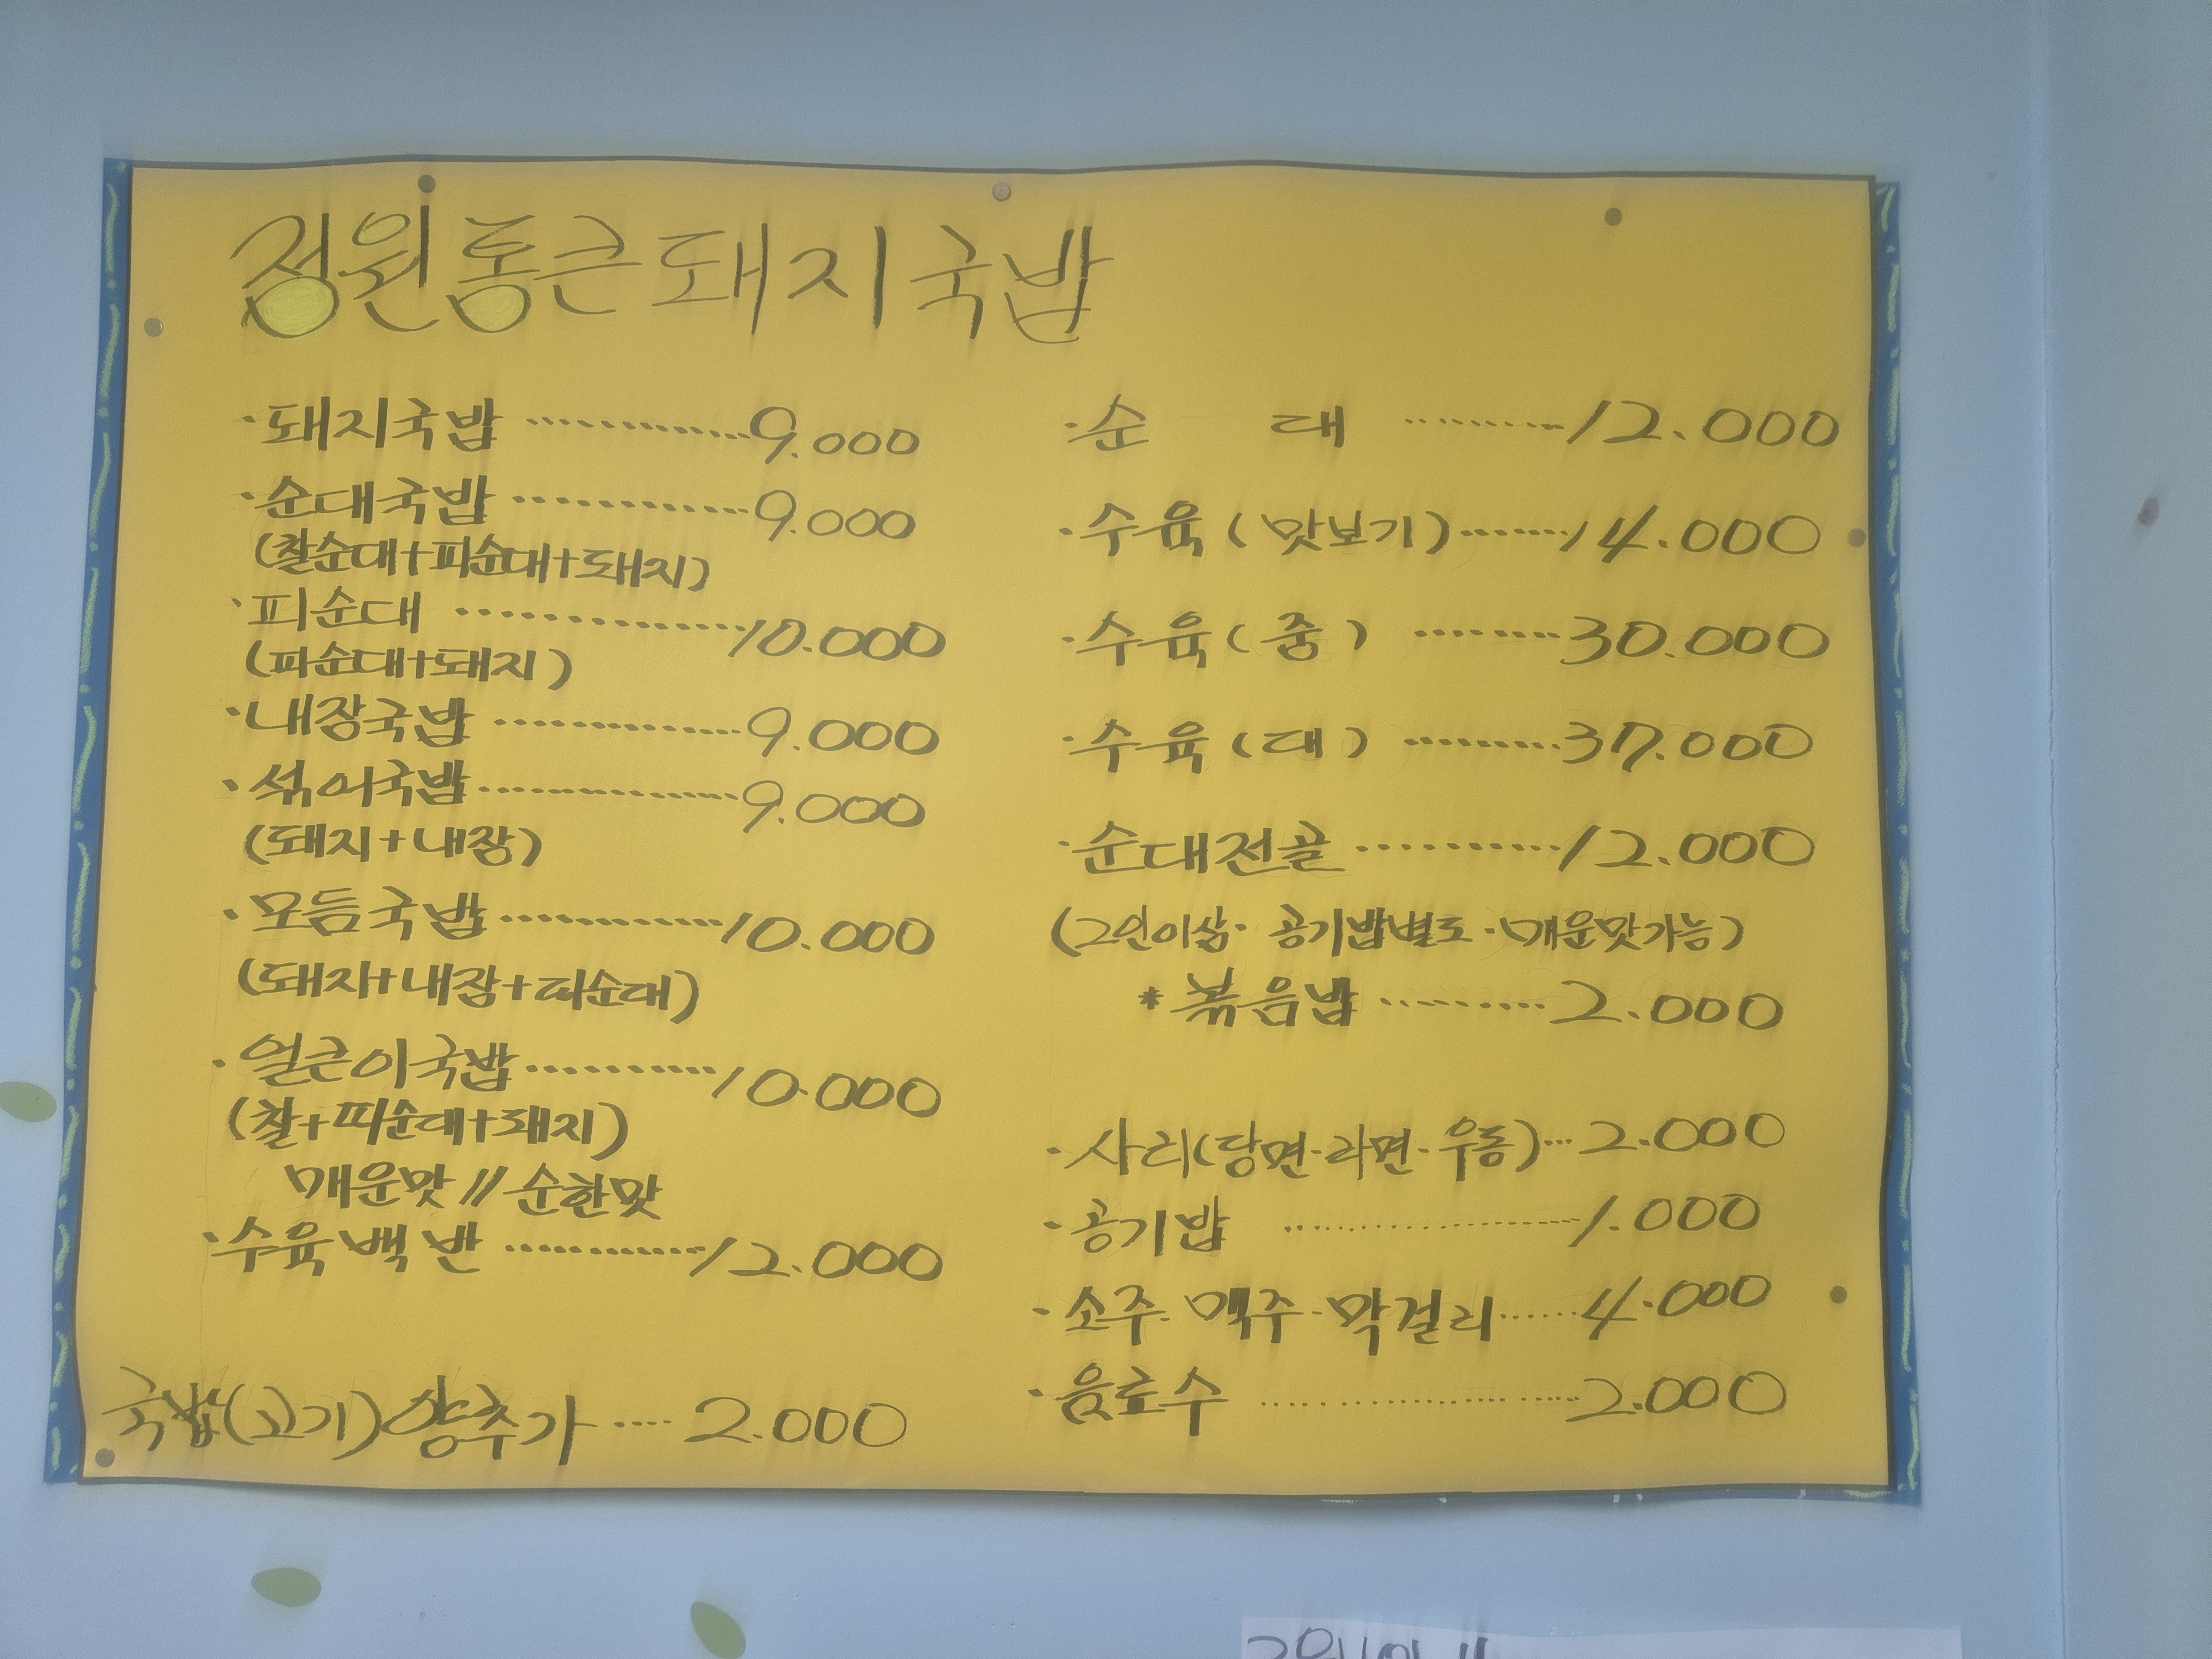 정원통큰돼지국밥
·돼지국밥 ············· 9.000
·순대국밥 ············· 9.000
(찰순대+피순대+돼지)
·피순대 ··············· 10.000
(피순대+돼지)
·내장국밥 ·············· 9.000
·섞어국밥 ··············· 9.000
(돼지+내장)
·모듬국밥 ············· 10.000
(돼지+내장+피순대)
·얼큰이국밥 ·········· 10.000
(찰+피순대+돼지)
매운맛 // 순한맛
·수육백반 ············ 12.000
국밥(고기)양추가 ···· 2.000
·순 대 ········· 12.000
·수육(맛보기) ······· 14.000
·수육(중) ········ 30.000
·수육(대) ········· 37.000
·순대전골 ··········· 12.000
(2인이상· 공기밥별도·매운맛가능)
*볶음밥 ········· 2.000
·사리(당면·라면·우동) ··· 2.000
·공기밥 ··················· 1.000
·소주·맥주·막걸리 ······ 4.000
·음료수 ··················· 2.000